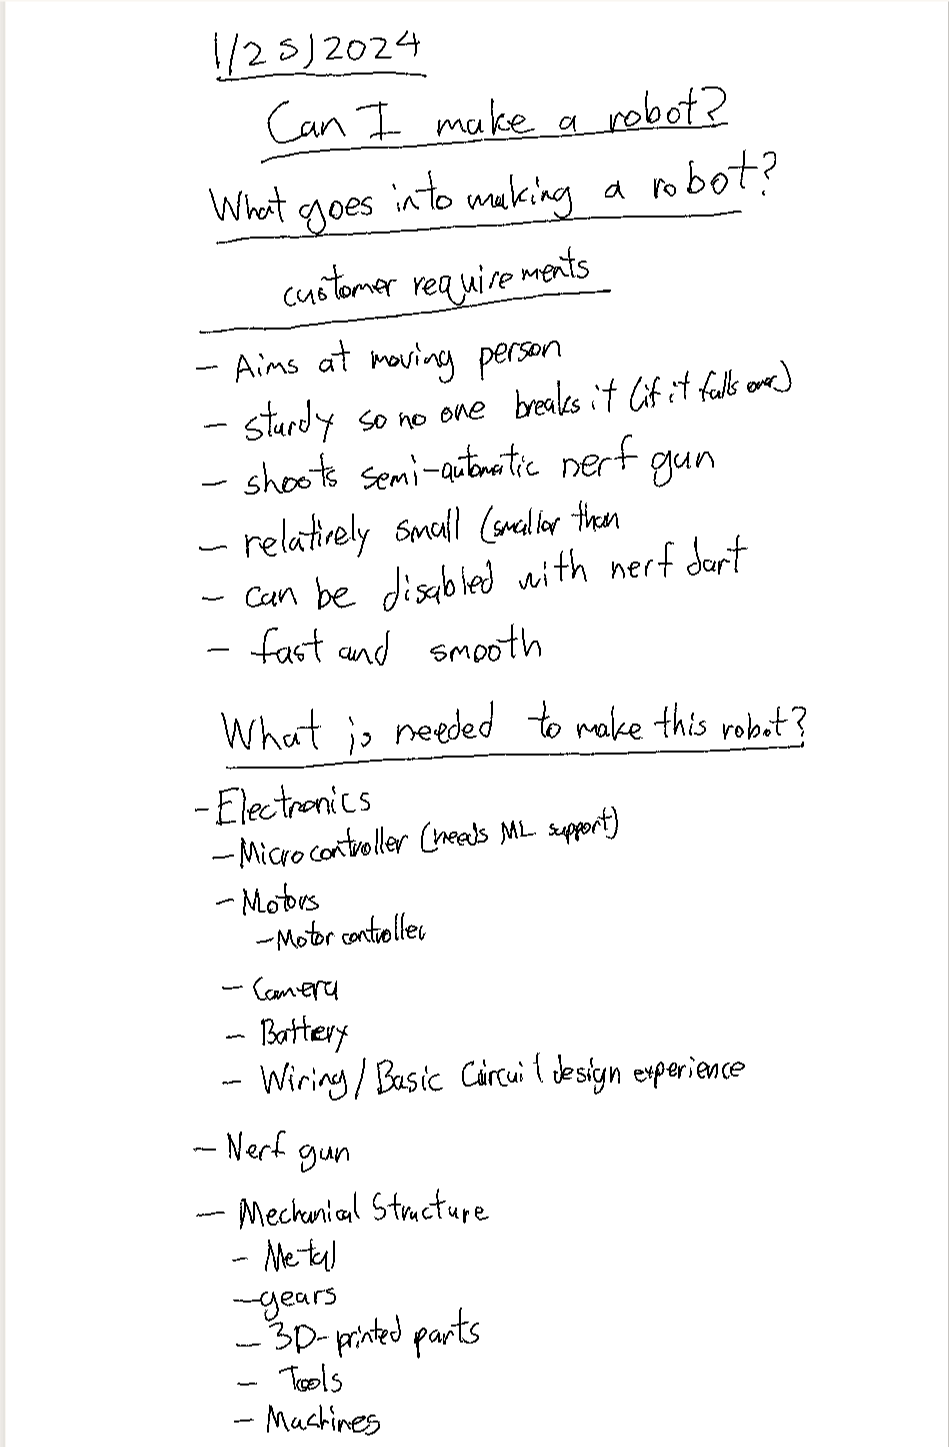 1/25/2024
Can I make a robot?
What goes into making a robot?
customer requirements
- Aims at moving person
- sturdy so no one breaks it (if it falls over)
- shoots semi-automatic nerf gun
- relatively small (smaller than
- can be disabled with nerf dart
- fast and smooth
What is needed to make this robot?
- Electronics
- Microcontroller (needs ML support)
- Motors
- Motor controller
- Camera
- Battery
- Wiring/Basic Circuit design experience
- Nerf gun
- Mechanical Structure
- Metal
- gears
- 3D-printed parts
- Tools
- Machines